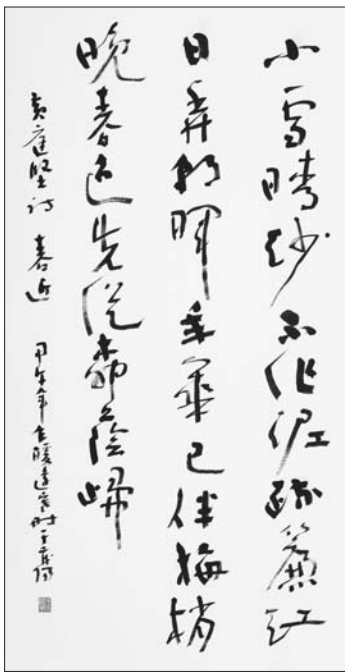 小雪晴沙不作泥疏簾紅
日弄朝暉年華已伴梅梢
晚春色先從草際歸
黄庭堅詩 春近 甲午年冬暖遠寒時